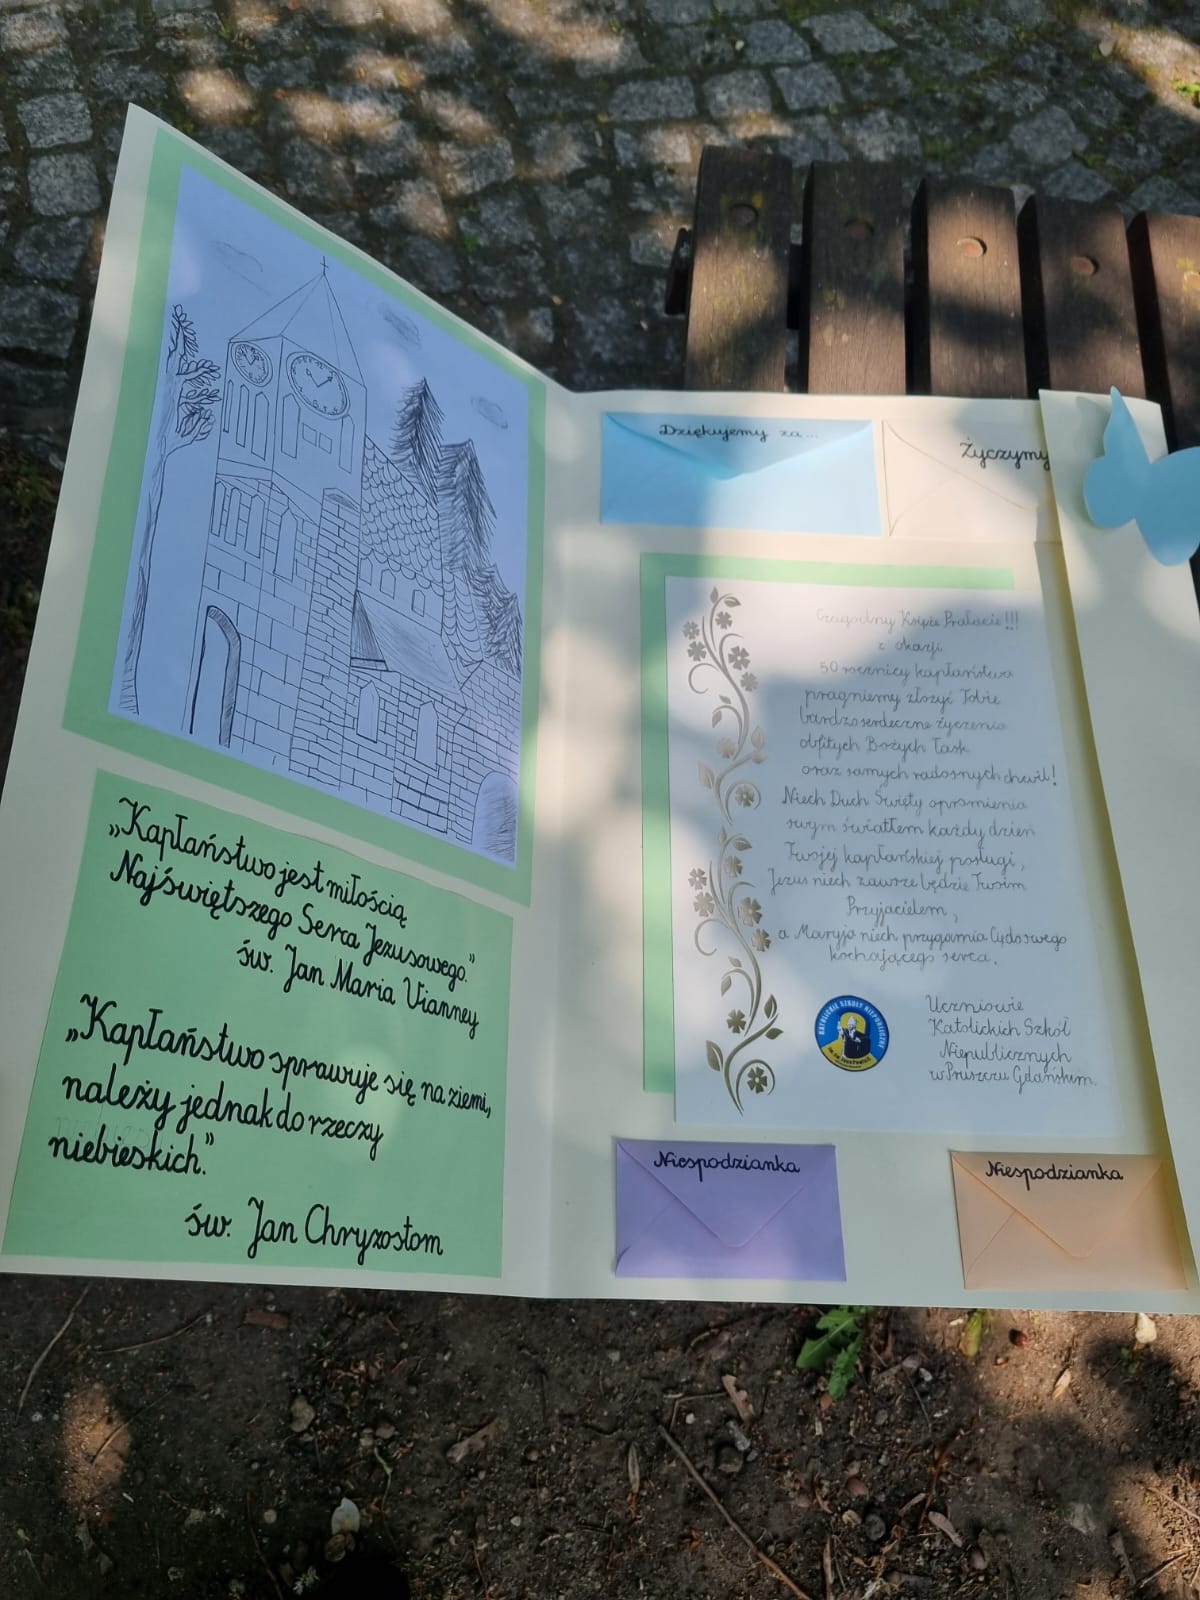 „Kapłaństwo jest miłością
Najświętszego Serca Jezusowego."
św. Jan Maria Vianney
„Kapłaństwo sprawuje się na ziemi,
należy jednak do rzeczy
niebieskich."
św. Jan Chryzostom
Dziękujemy za...
Życzymy
Czcigodny Księże Prałacie!!!
z okazji
50 rocznicy kapłaństwa
pragniemy złożyć Tobie
bardzo serdeczne życzenia
obfitych Bożych Łask
oraz samych radosnych chwil!
Niech Duch Święty opromienia
swym światłem każdy dzień
Twojej kapłańskiej posługi,
Jezus niech zawsze będzie Twoim
Przyjacielem,
a Maryja niech przygarnia Cię do swego
kochającego serca.
KATOLICKIE SZKOŁY NIEPUBLICZNE
Uczniowie
Katolickich Szkół
Niepublicznych
w Pruszczu Gdańskim.
Niespodzianka
Niespodzianka